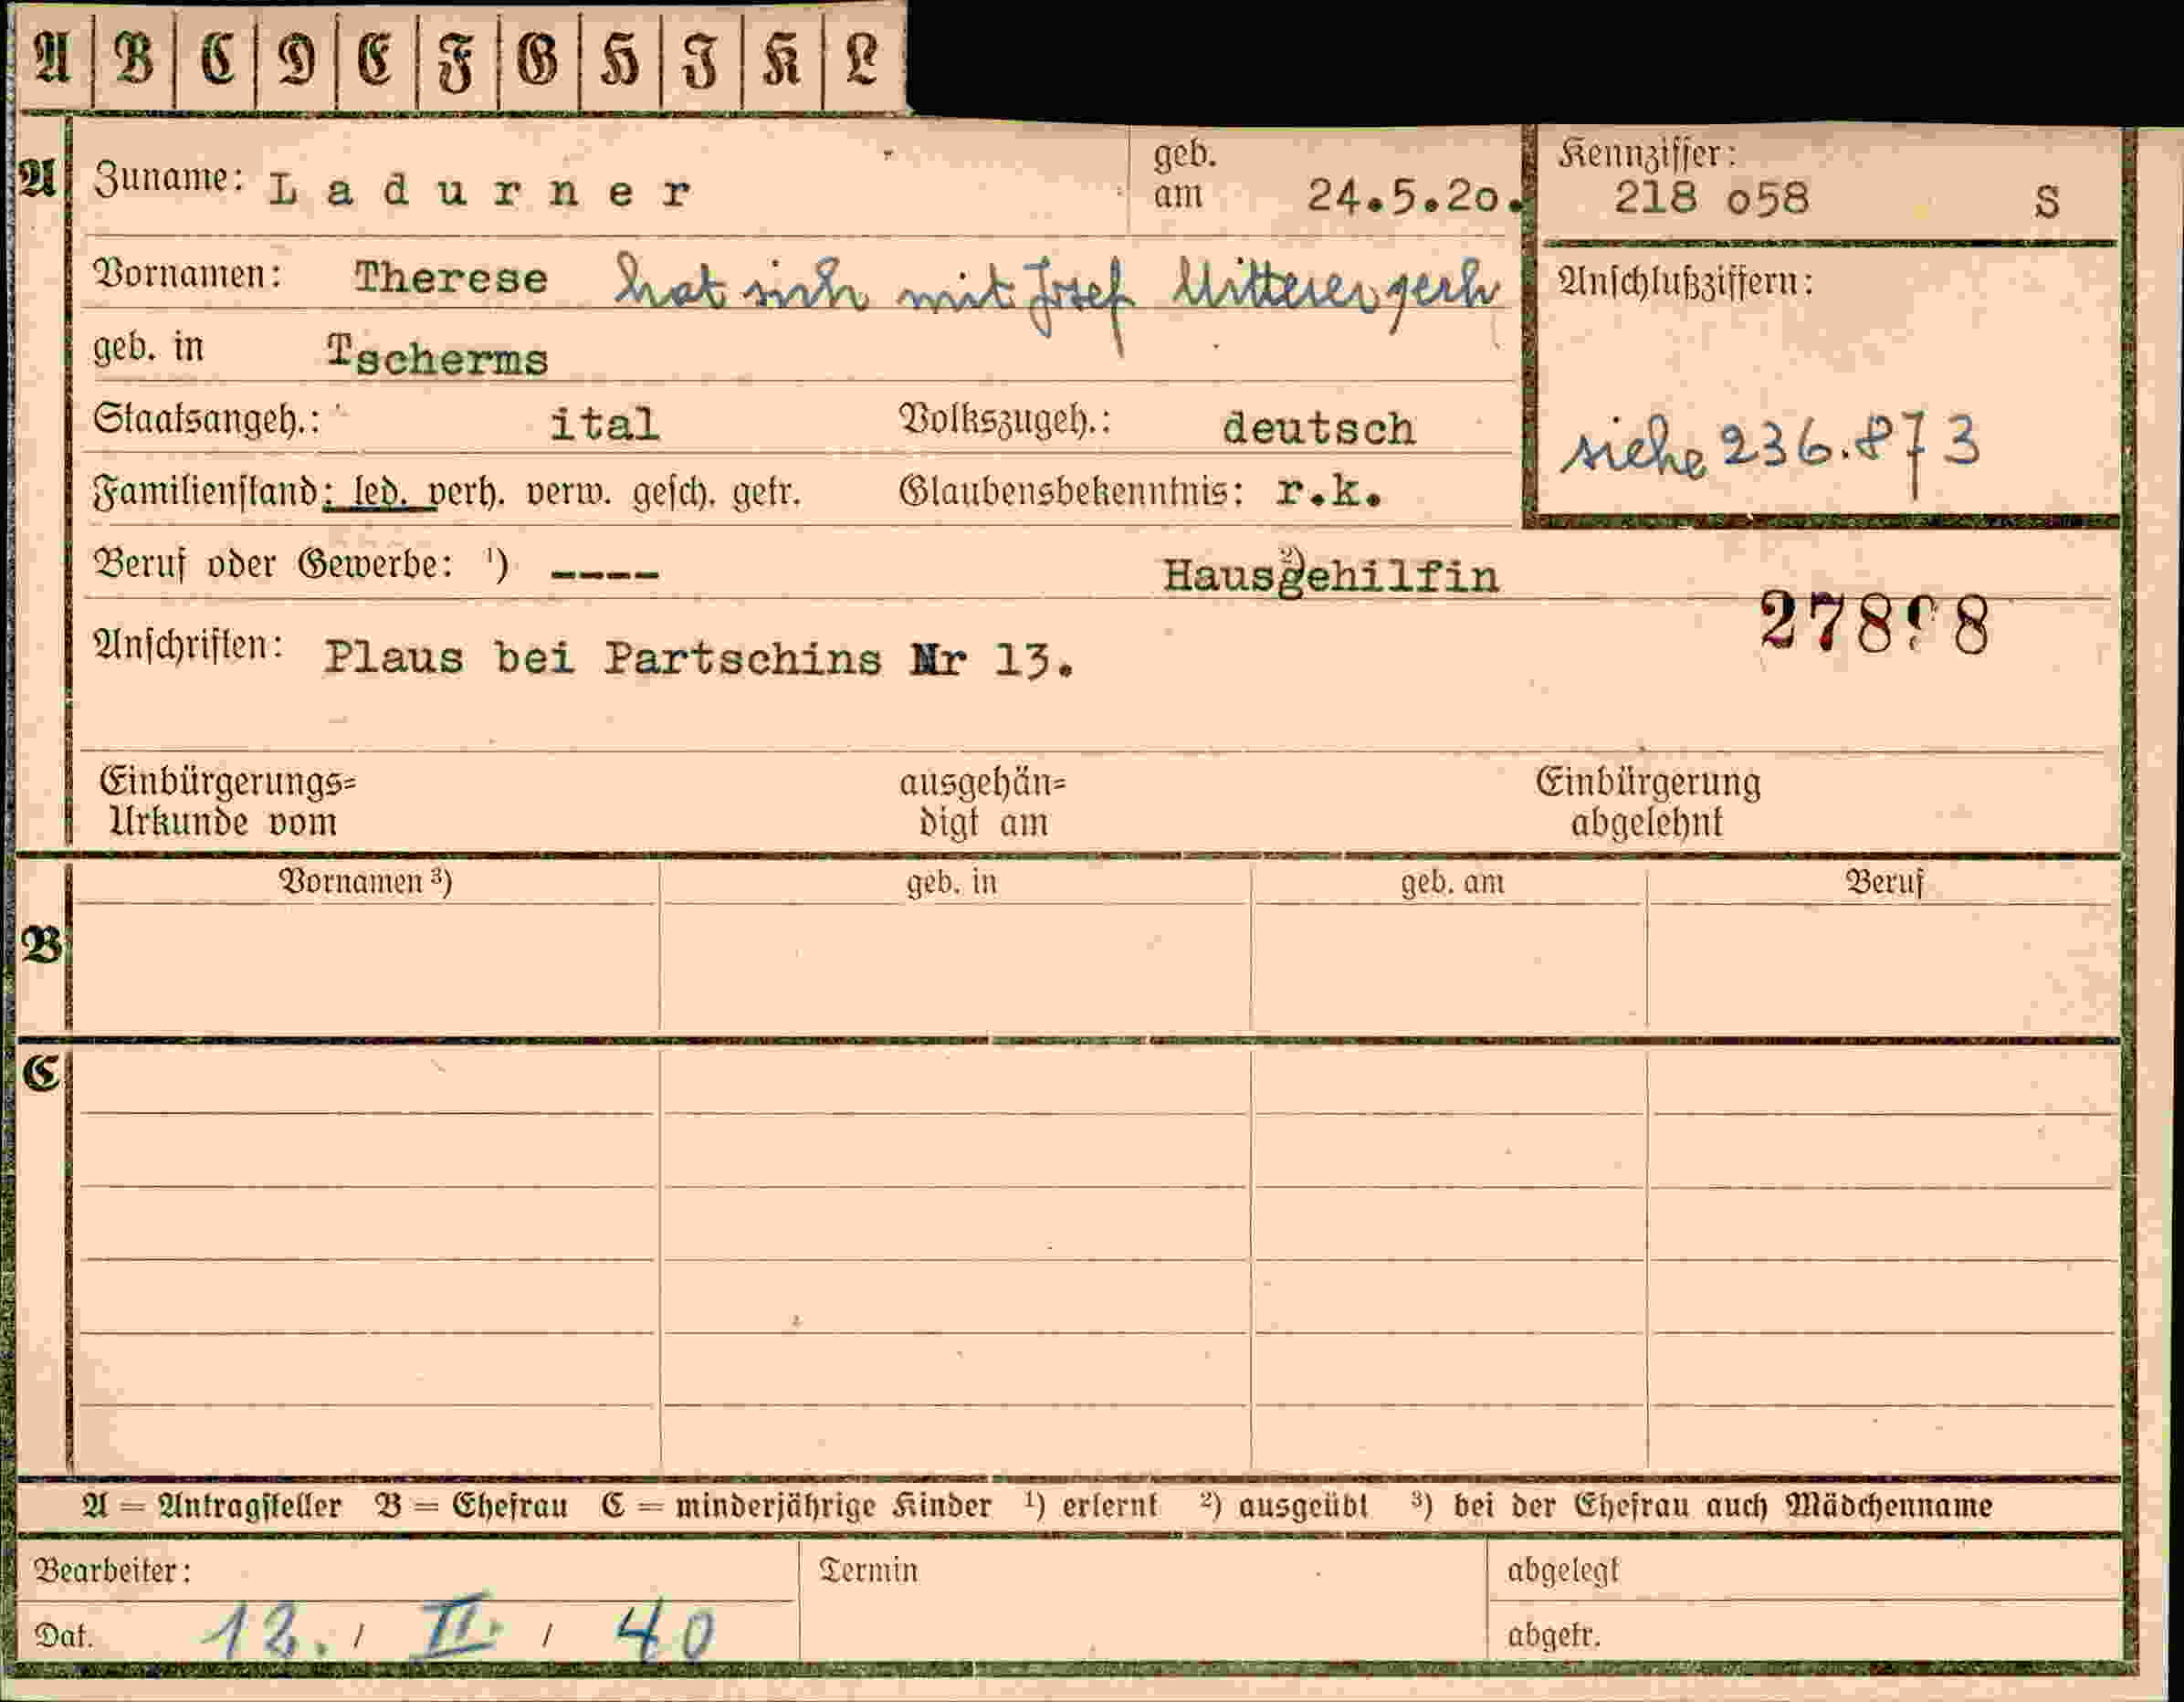 A B C D E F G H I K L
A Zuname: Ladurner geb. am 24.5.2o. Kennziffer: 218 o58 S
Vornamen: Therese hat sich mit Josef Mitterer gesch Anschlußziffern:
geb. in Tscherms
Staatsangeh.: ital Volkszugeh.: deutsch siehe 236.873
Familienstand: led. verh. verw. gesch. getr. Glaubensbekenntnis: r.k.
Beruf oder Gewerbe: ¹) ---- ²) Hausgehilfin
Anschriften: Plaus bei Partschins Nr 13.
Einbürgerungs=Urkunde vom ausgehän=digt am Einbürgerung abgelehnt
Vornamen ³) geb. in geb. am Beruf
B
C
A = Antragsteller B = Ehefrau C = minderjährige Kinder ¹) erlernt ²) ausgeübt ³) bei der Ehefrau auch Mädchenname
Bearbeiter: Termin abgelegt
Dat. 12. / II. / 40 abgetr.